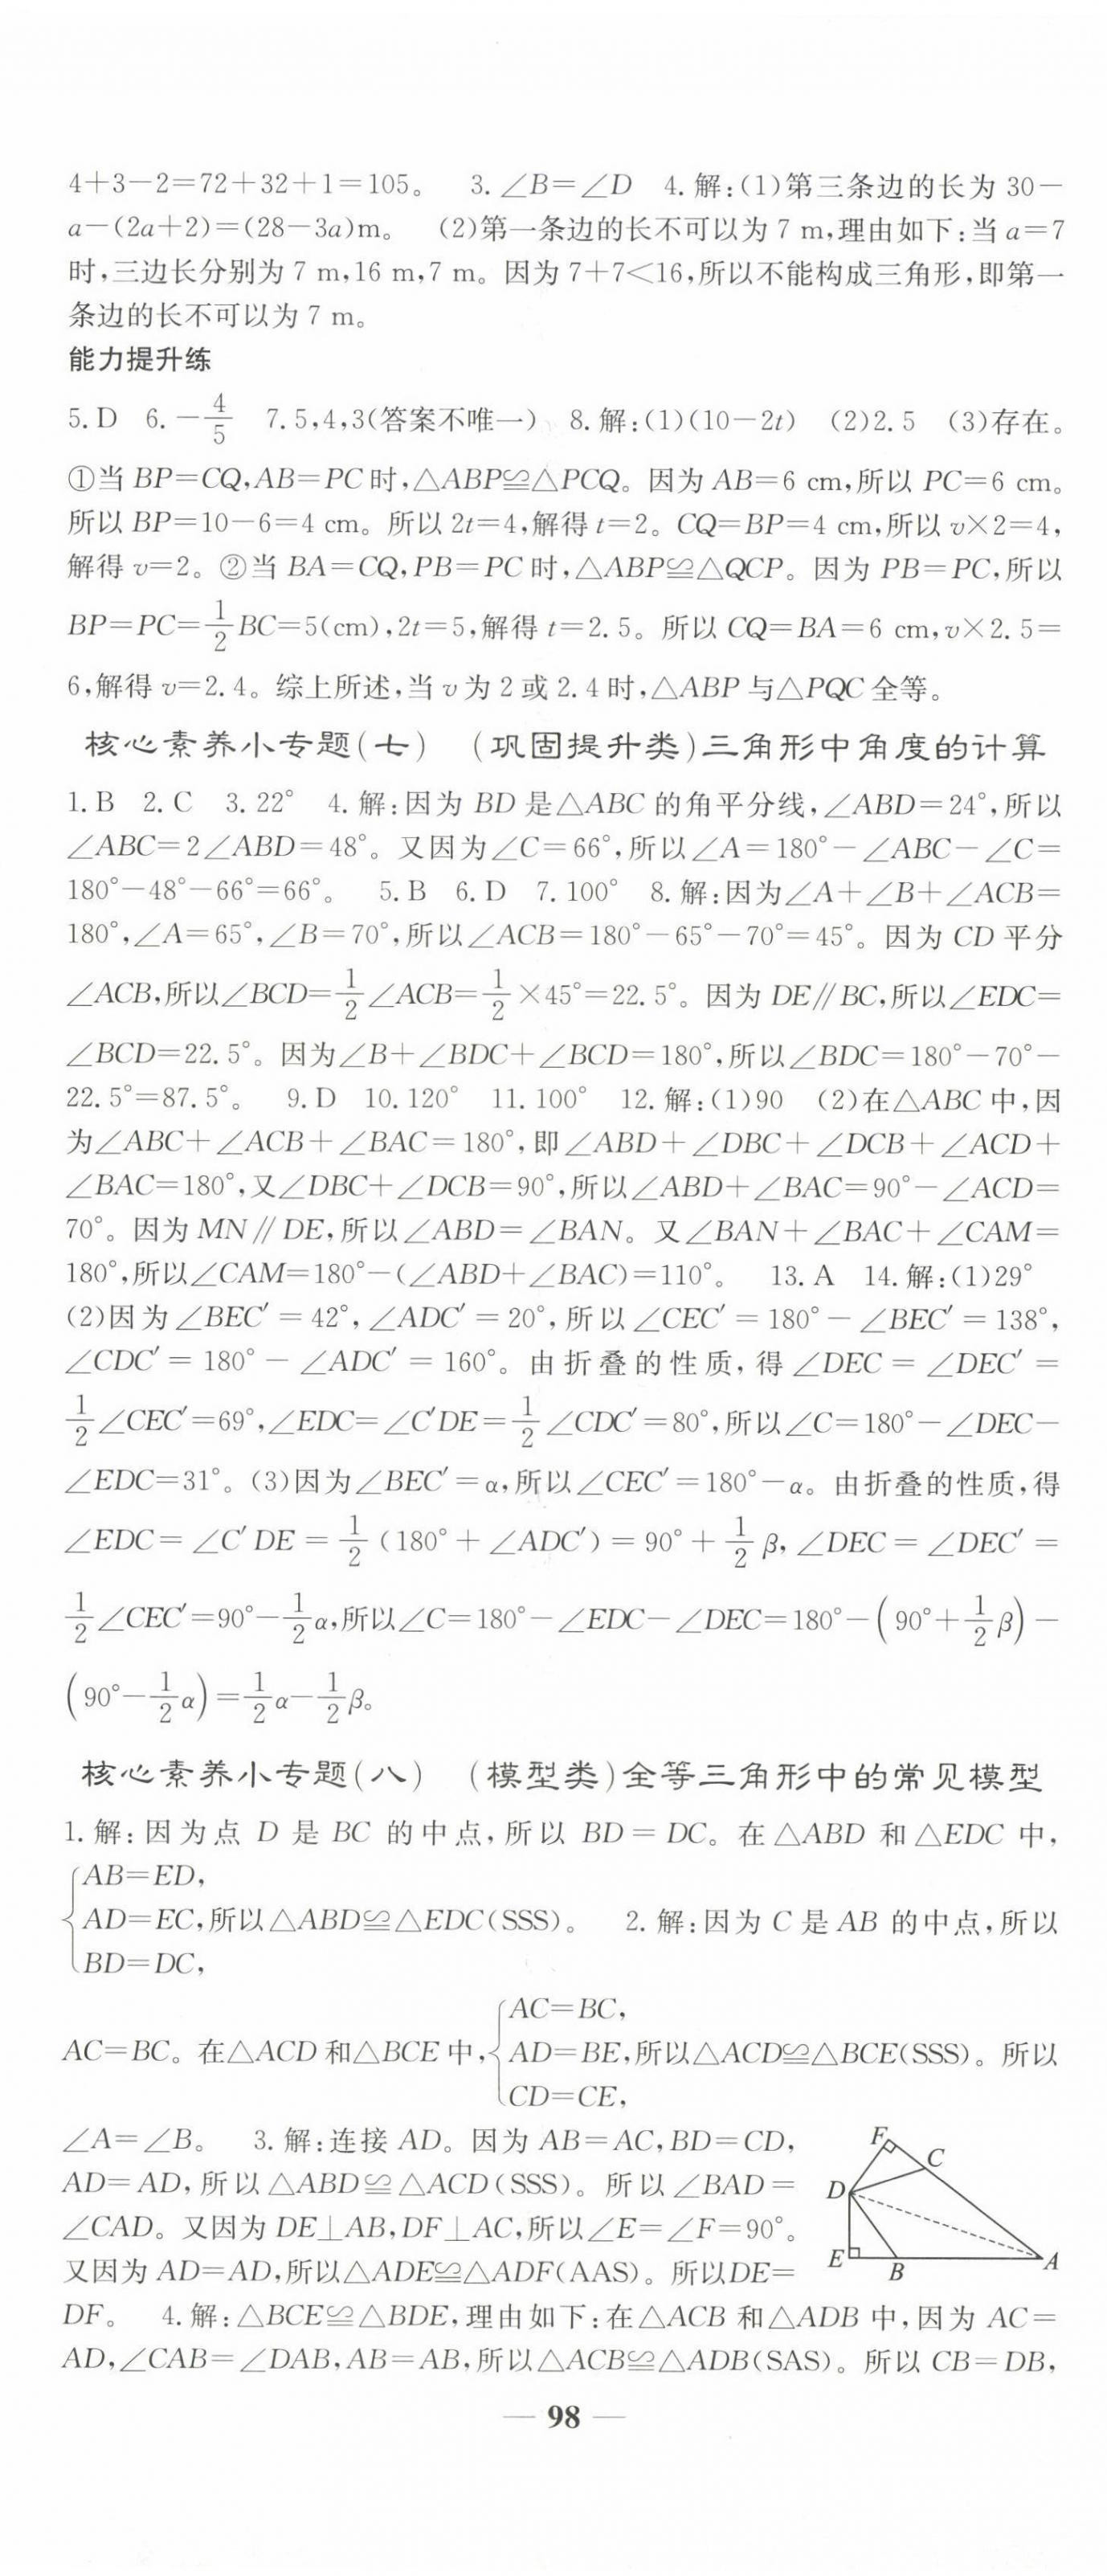 4+3−2=72+32+1=105。 3.∠B=∠D 4.解:(1)第三条边的长为 30−
a−(2a+2)=(28−3a)m。 (2)第一条边的长不可以为 7 m,理由如下:当 a=7
时,三边长分别为 7 m,16 m,7 m。因为 7+7<16,所以不能构成三角形,即第一
条边的长不可以为 7 m。
能力提升练
5.D 6.−4/5 7.5,4,3(答案不唯一) 8.解:(1)(10−2t) (2)2.5 (3)存在。
①当 BP=CQ,AB=PC 时,△ABP≌△PCQ。因为 AB=6 cm,所以 PC=6 cm。
所以 BP=10−6=4 cm。所以 2t=4,解得 t=2。CQ=BP=4 cm,所以 v×2=4,
解得 v=2。②当 BA=CQ,PB=PC 时,△ABP≌△QCP。因为 PB=PC,所以
BP=PC=1/2 BC=5(cm),2t=5,解得 t=2.5。所以 CQ=BA=6 cm,v×2.5=
6,解得 v=2.4。综上所述,当 v 为 2 或 2.4 时,△ABP 与△PQC 全等。
核心素养小专题(七) (巩固提升类)三角形中角度的计算
1.B 2.C 3.22° 4.解:因为 BD 是△ABC 的角平分线,∠ABD=24°,所以
∠ABC=2∠ABD=48°。又因为∠C=66°,所以∠A=180°−∠ABC−∠C=
180°−48°−66°=66°。 5.B 6.D 7.100° 8.解:因为∠A+∠B+∠ACB=
180°,∠A=65°,∠B=70°,所以∠ACB=180°−65°−70°=45°。因为 CD 平分
∠ACB,所以∠BCD=1/2∠ACB=1/2×45°=22.5°。因为 DE∥BC,所以∠EDC=
∠BCD=22.5°。因为∠B+∠BDC+∠BCD=180°,所以∠BDC=180°−70°−
22.5°=87.5°。 9.D 10.120° 11.100° 12.解:(1)90 (2)在△ABC 中,因
为∠ABC+∠ACB+∠BAC=180°,即∠ABD+∠DBC+∠DCB+∠ACD+
∠BAC=180°,又∠DBC+∠DCB=90°,所以∠ABD+∠BAC=90°−∠ACD=
70°。因为 MN∥DE,所以∠ABD=∠BAN。又∠BAN+∠BAC+∠CAM=
180°,所以∠CAM=180°−(∠ABD+∠BAC)=110°。 13.A 14.解:(1)29°
(2)因为∠BEC′=42°,∠ADC′=20°,所以∠CEC′=180°−∠BEC′=138°,
∠CDC′=180°−∠ADC′=160°。由折叠的性质,得∠DEC=∠DEC′=
1/2∠CEC′=69°,∠EDC=∠C′DE=1/2∠CDC′=80°,所以∠C=180°−∠DEC−
∠EDC=31°。(3)因为∠BEC′=α,所以∠CEC′=180°−α。由折叠的性质,得
∠EDC=∠C′DE=1/2(180°+∠ADC′)=90°+1/2β,∠DEC=∠DEC′=
1/2∠CEC′=90°−1/2α,所以∠C=180°−∠EDC−∠DEC=180°−(90°+1/2β)−
(90°−1/2α)=1/2α−1/2β。
核心素养小专题(八) (模型类)全等三角形中的常见模型
1.解:因为点 D 是 BC 的中点,所以 BD=DC。在△ABD 和△EDC 中,
AB=ED,
AD=EC,所以△ABD≌△EDC(SSS)。 2.解:因为 C 是 AB 的中点,所以
BD=DC,
AC=BC,
AC=BC。在△ACD 和△BCE 中,AD=BE,所以△ACD≌△BCE(SSS)。所以
CD=CE,
∠A=∠B。 3.解:连接 AD。因为 AB=AC,BD=CD,
AD=AD,所以△ABD≌△ACD(SSS)。所以∠BAD=
∠CAD。又因为 DE⊥AB,DF⊥AC,所以∠E=∠F=90°。
又因为 AD=AD,所以△ADE≌△ADF(AAS)。所以DE=
F
C
D
E
B
A
DF。 4.解:△BCE≌△BDE,理由如下:在△ACB 和△ADB 中,因为 AC=
AD,∠CAB=∠DAB,AB=AB,所以△ACB≌△ADB(SAS)。所以 CB=DB,
— 98 —